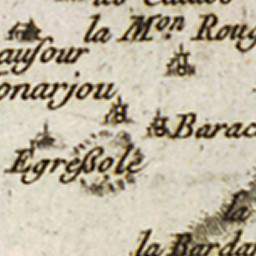 la Mᵒⁿ Roug
auſour
onarjou
Barac
Egreßole
la
la Bardan